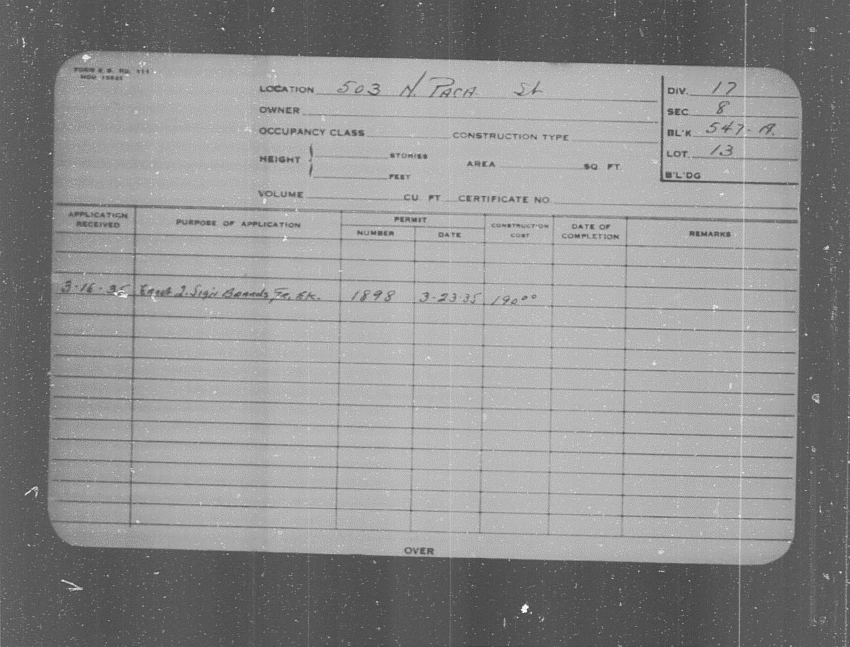 LOCATION 503 N. PACA St
OWNER
OCCUPANCY CLASS CONSTRUCTION TYPE
HEIGHT STORIES
FEET
AREA SQ. FT.
VOLUME CU. FT. CERTIFICATE NO.
DIV. 17
SEC. 8
BL'K 547-A.
LOT. 13
B'L'DG
APPLICATION RECEIVED
PURPOSE OF APPLICATION
PERMIT
NUMBER DATE
CONSTRUCTION COST
DATE OF COMPLETION
REMARKS
3-16-35 Erect 2 Sign Boards 1898 3-23-35 190.00
OVER